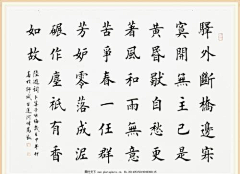 驛外斷橋邊寂
寞開無主已是
黃昏獨自愁更
著風和雨無意
苦爭春一任群
芳妒零落成泥
碾作塵祇有香
如故
陸游詞卜算子詠梅